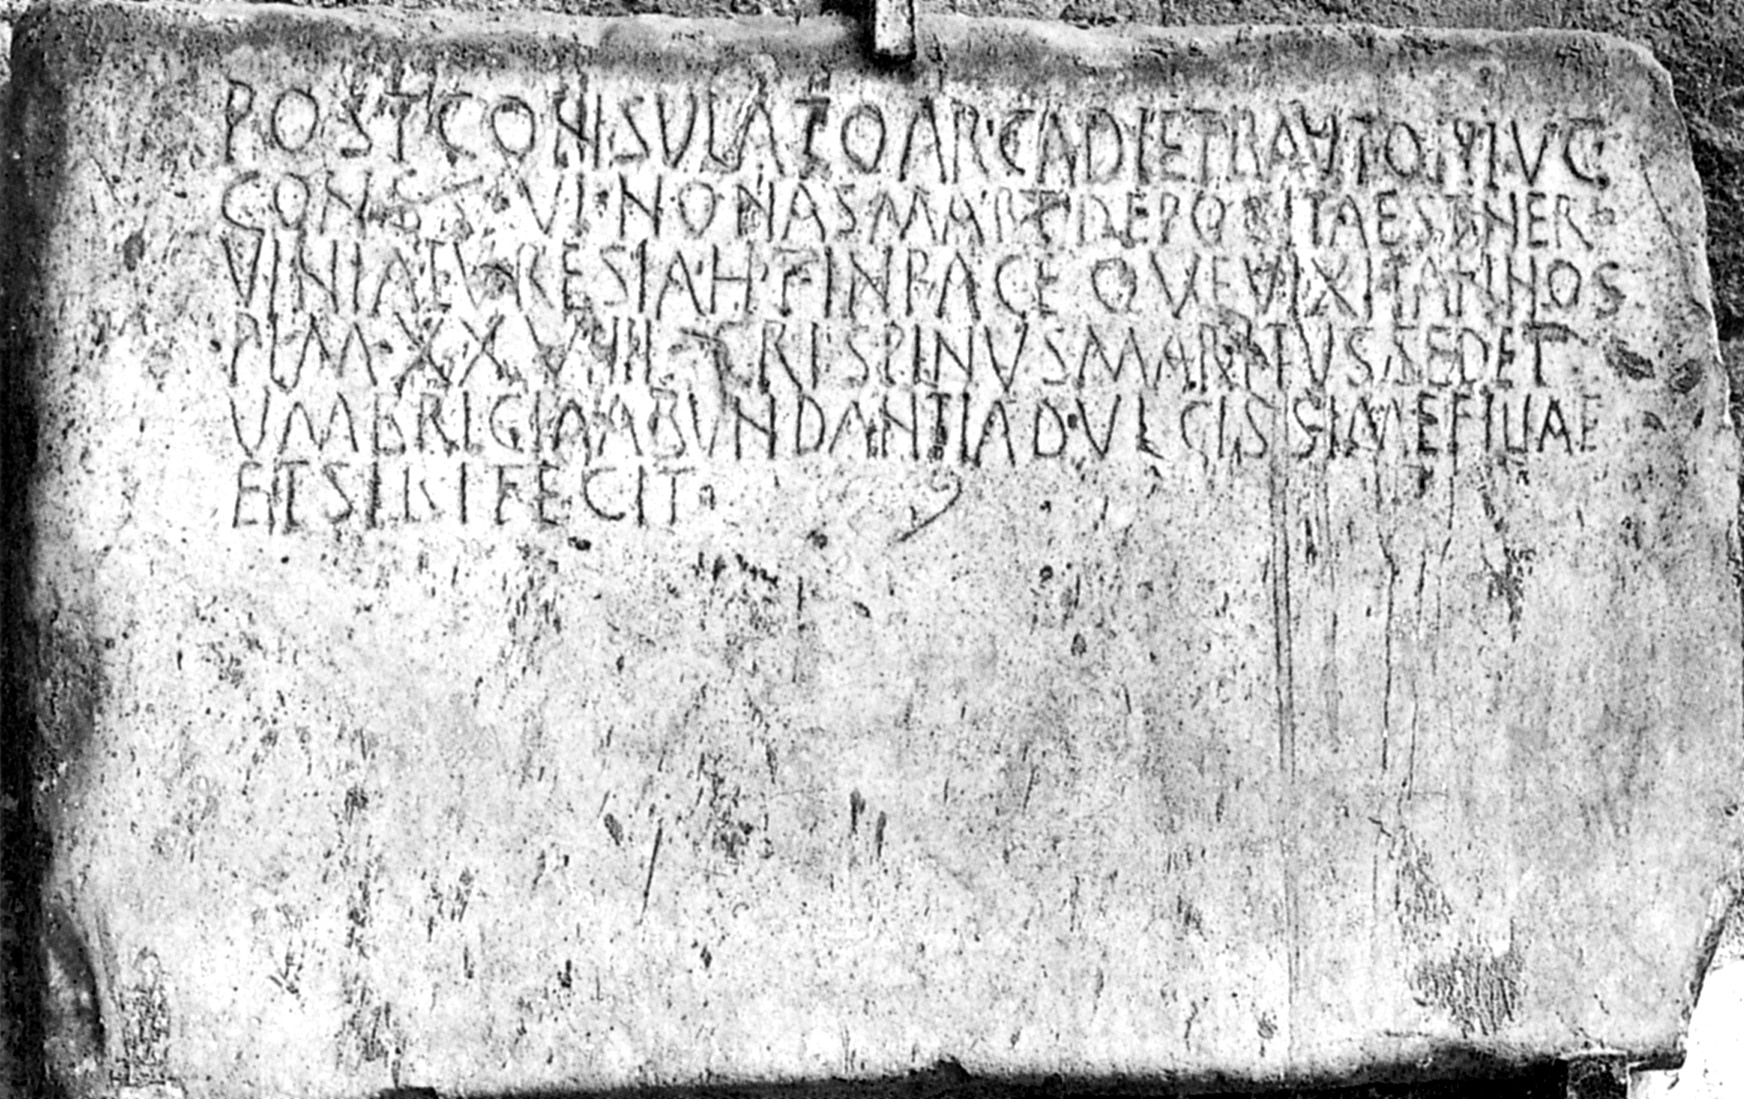 POST CONSULATO ARCADI ET BAVTONI V C
CONSS VI NONAS MARTI DEPOSITA EST NER
VINIA EVRESIA H F IN PACE QVE VIXIT ANNOS
PL M XXVIIII CRISPINVS MARITVS SED ET
VMBRICIA ABVNDANTIA DVLCISSIME FILIAE
ET SIBI FECIT